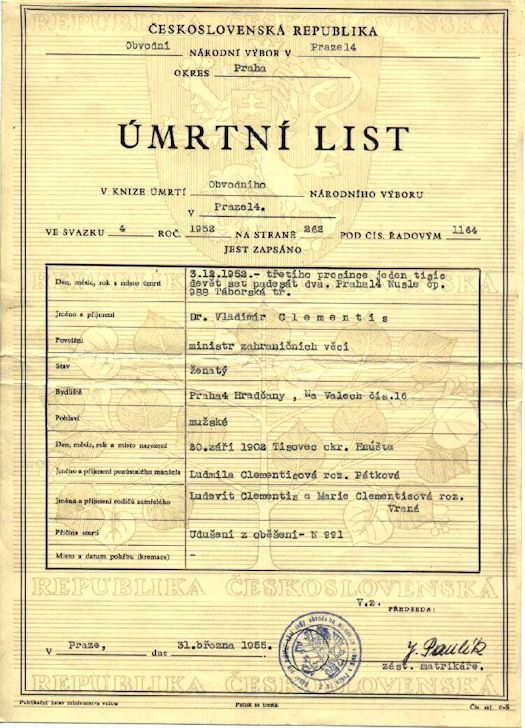 ČESKOSLOVENSKÁ REPUBLIKA
Obvodní NÁRODNÍ VÝBOR V Praze14
OKRES Praha
ÚMRTNÍ LIST
V KNIZE ÚMRTÍ Obvodního NÁRODNÍHO VÝBORU
V Praze14.
VE SVAZKU 4 ROČ. 1952 NA STRANĚ 262 POD ČÍS. ŘADOVÝM 1164
JEST ZAPSÁNO
Den, měsíc, rok a místo úmrtí 3.12.1952.- třetího prosince jeden tisíc
devět set padesát dva. Praha14 Nusle čp.
988 Táborská tř.
Jméno a příjmení Dr. Vladimír Clementis
Povolání ministr zahraničních věcí
Stav ženatý
Bydliště Praha4 Hradčany , Na Valech čís.16
Pohlaví mužské
Den, měsíc, rok a místo narození 20.září 1902 Tisovec okr. Hnúšta
Jméno a příjmení pozůstalého manžela Ludmila Clementisová roz. Pátková
Jména a příjmení rodičů zemřelého Ludevít Clementis a Marie Clementisová roz.
Vraná
Příčina smrti Udušení z oběšení- N 991
Místo a datum pohřbu (kremace) -
REPUBLIKA ČESKOSLOVENSKÁ
V.z.
PŘEDSEDA:
V Praze, dne 31.března 1955.
J. Paulík
zást. matrikáře.
Padělek se trestá